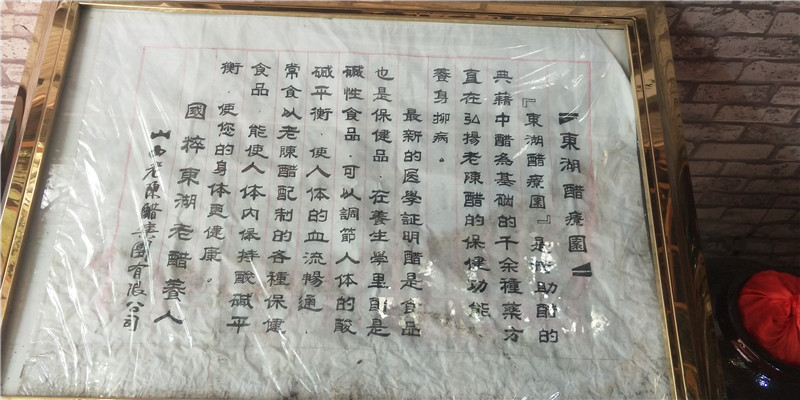 【東湖醋療園】
『東湖醋療園』是助的
典藉中醋為基础的千余種藥方
直在弘揚老陳醋的保健功能
養身抑病。
最新的医學証明醋是食品
也是保健品.在養生學里醋是
碱性食品.可以調節人体的酸
碱平衡.使人体的血流暢通.
常食以老陳醋配制的各種保健
食品 能使人体内保持酸碱平
衡.使您的身体更健康。
國粹東湖老醋養人
山西老陳醋集團有限公司